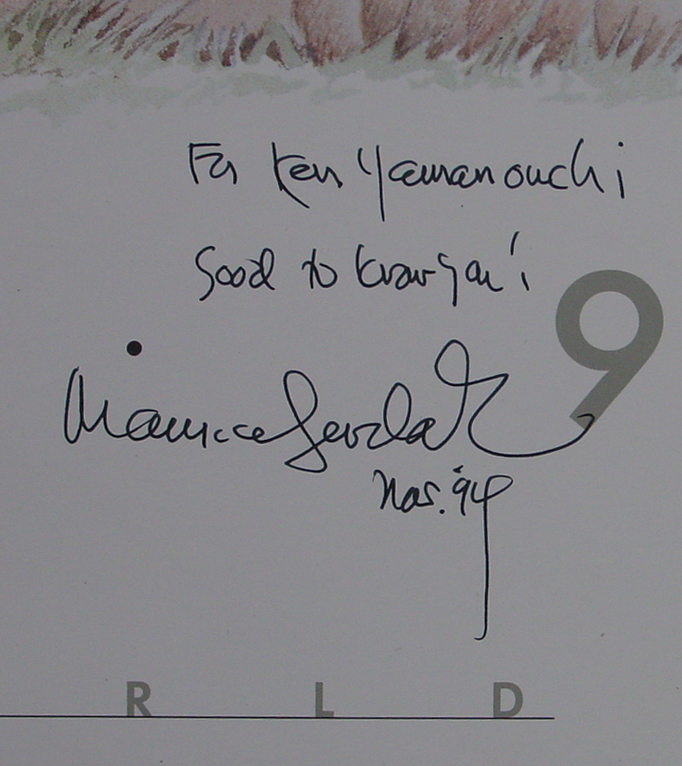 For Ken Yamanouchi
Good to know you!
9
Maurice Sendak
Nov. '94
R L D